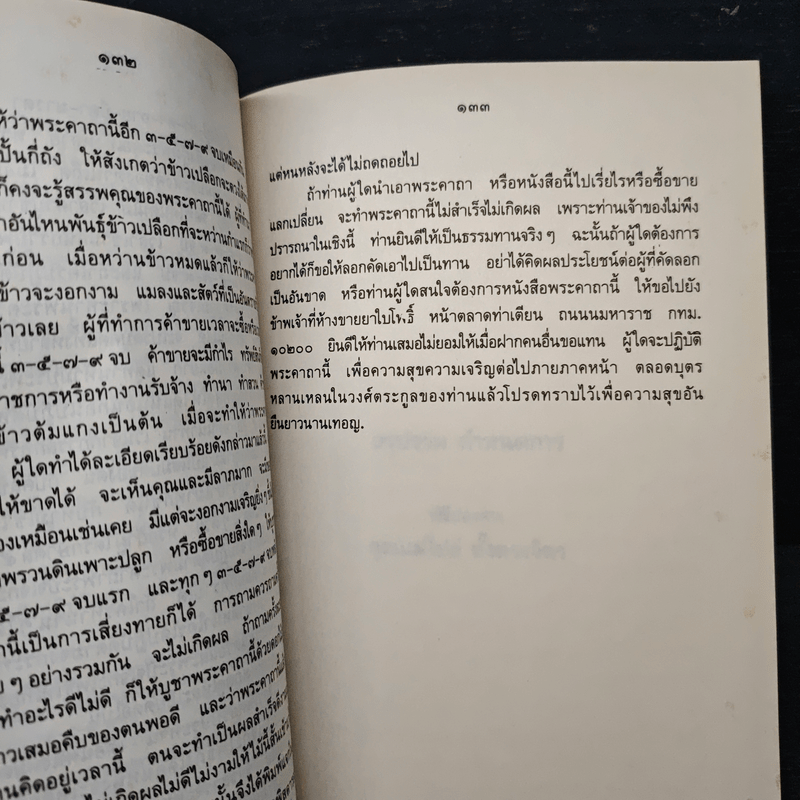 ๑๓๒
ห้ว่าพระคาถานี้อีก ๓-๕-๗-๙ จบเหมือน
ปั้นกี่ถัง ให้สังเกตว่าข้าวเปลือกจะ
ก็คงจะรู้สรรพคุณของพระคาถานี้ได้ ผู้ที่
าอันไหนพันธุ์ข้าวเปลือกที่จะหว่าน
ก่อน เมื่อหว่านข้าวหมดแล้วก็ให้ว่า
ข้าวจะงอกงาม แมลงและสัตว์ที่เป็น
าวเลย ผู้ที่ทำการค้าขายเวลาจะซื้อ
นี้ ๓-๕-๗-๙ จบ ค้าขายจะมีกำไร
ราชการหรือทำงานรับจ้าง ทำนา ทำสวน
ข้าวต้มแกงเป็นต้น เมื่อจะทำให้ว่า
ผู้ใดทำได้ละเอียดเรียบร้อยดังกล่าวมาแล้ว
ให้ขาดได้ จะเห็นคุณและมีลาภมาก
องเหมือนเช่นเคย มีแต่จะงอกงามเจริญยิ่งๆ
พรวนดินเพาะปลูก หรือซื้อขายสิ่งใดๆ
๕-๗-๙ จบแรก และทุกๆ ๓-๕-๗-๙
านี้เป็นการเสี่ยงทายก็ได้ การถามควร
ๆ อย่างรวมกัน จะไม่เกิดผล ถ้าถาม
ทำอะไรดีไม่ดี ก็ให้บูชาพระคาถานี้ด้วย
าวเสมอคืบของตนพอดี และว่าพระคาถา
นคิดอยู่เวลานี้ ตนจะทำเป็นผลสำเร็จ
ไม่เกิดผลไม่ดีไม่งามให้ไม้นี้สั้น
นั้นจึงได้พิมพ์
๑๓๓
แต่หนหลังจะได้ไม่ถดถอยไป
ถ้าท่านผู้ใดนำเอาพระคาถา หรือหนังสือนี้ไปเรี่ยไรหรือซื้อขาย
แลกเปลี่ยน จะทำพระคาถานี้ไม่สำเร็จไม่เกิดผล เพราะท่านเจ้าของไม่พึง
ปรารถนาในเชิงนี้ ท่านยินดีให้เป็นธรรมทานจริงๆ ฉะนั้นถ้าผู้ใดต้องการ
อยากได้ก็ขอให้ลอกคัดเอาไปเป็นทาน อย่าได้คิดผลประโยชน์ต่อผู้ที่คัดลอก
เป็นอันขาด หรือท่านผู้ใดสนใจต้องการหนังสือพระคาถานี้ ให้ขอไปยัง
ข้าพเจ้าที่ห้างขายยาใบโพธิ์ หน้าตลาดท่าเตียน ถนนนมหาราช กทม.
๑๐๒๐๐ ยินดีให้ท่านเสมอไม่ยอมให้เมื่อฝากคนอื่นขอแทน ผู้ใดจะปฏิบัติ
พระคาถานี้ เพื่อความสุขความเจริญต่อไปภายภาคหน้า ตลอดบุตร
หลานเหลนในวงศ์ตระกูลของท่านแล้วโปรดทราบไว้เพื่อความสุขอัน
ยืนยาวนานเทอญ.